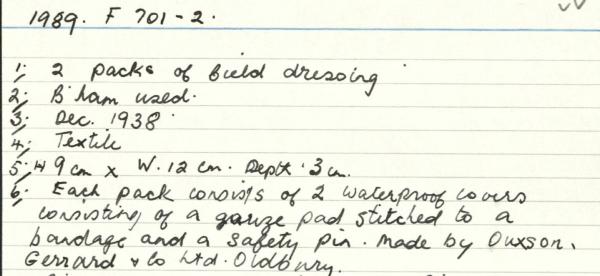 1989. F 701-2.
1; 2 packs of field dressing
2; B'ham used.
3; Dec. 1938
4; Textile
5; H 9 cm x W. 12 cm. Depth 3 cm.
6; Each pack consists of 2 waterproof covers
consisting of a gauze pad stitched to a
bandage and a safety pin. Made by Ouxson,
Gerrard & Co Ltd. Oldbury.